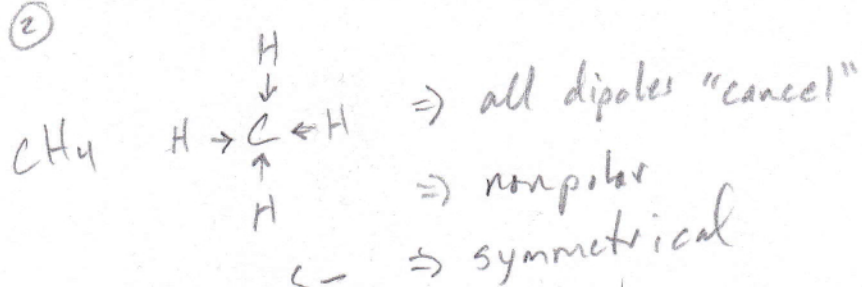 ②
H
↓
CH4 H → C ← H ⇒ all dipoles "cancel"
↑
H ⇒ nonpolar
⇒ symmetrical